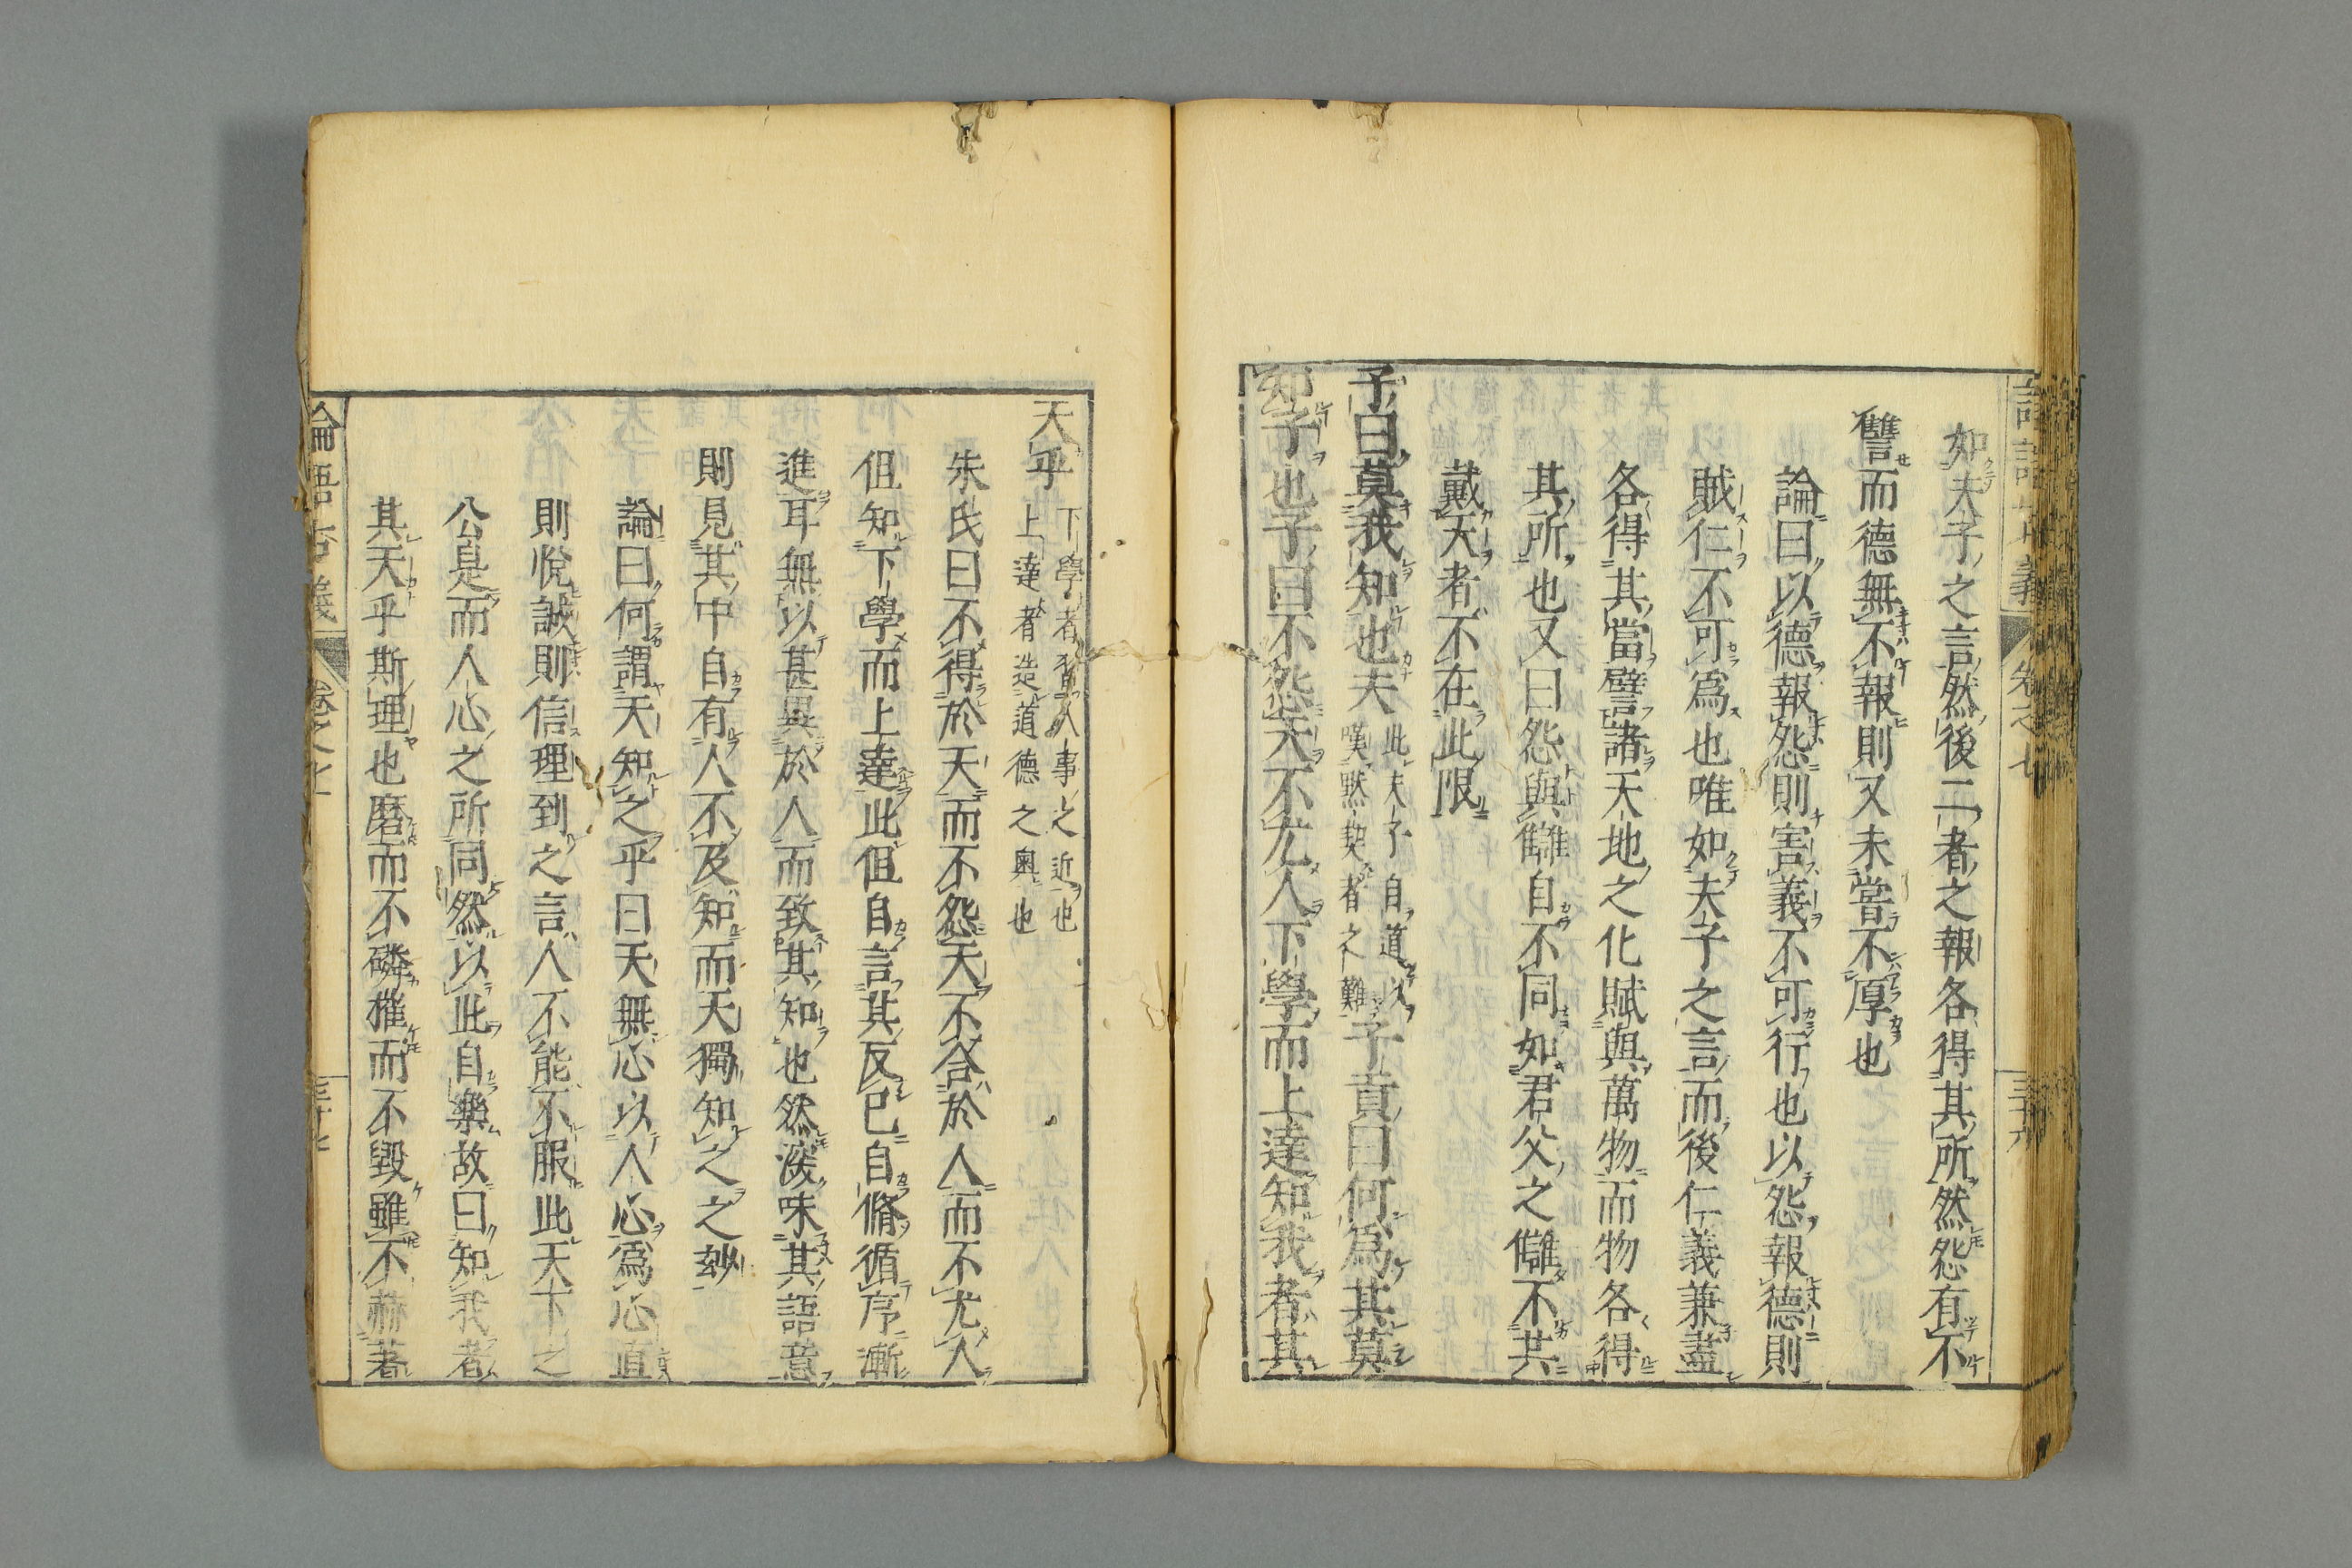 如夫子之言然後二者之報各得其所然怨有不
讐而德無不報則又未嘗不厚也
論曰以德報怨則害義不可行也以怨報德則
賊仁不可爲也唯如夫子之言而後仁義兼盡
各得其當譬諸天地之化賦與萬物而物各得
其所也又曰怨與讎自不同如君父之讎不共
戴天者不在此限
子曰莫我知也夫
此夫子自道以
嘆黙契者之難
子貢曰何爲其莫
知子也子曰不怨天不尤人下學而上達知我者其
卷之七
三十六
天乎
下學者習人事之近也
上達者造道德之奧也
朱氏曰不得於天而不怨天不合於人而不尤人
但知下學而上達此但自言其反己自脩循序漸
進耳無以甚異於人而致其知也然深味其語意
則見其中自有人不及知而天獨知之之玅
論曰何謂天知之乎曰天無心以人心爲心直
則悅誠則信理到之言人不能不服此天下之
公是而人心之所同然以此自樂故曰知我者
其天乎斯理也磨而不磷摧而不毀雖不赫著
論語古義
卷之七
三十七